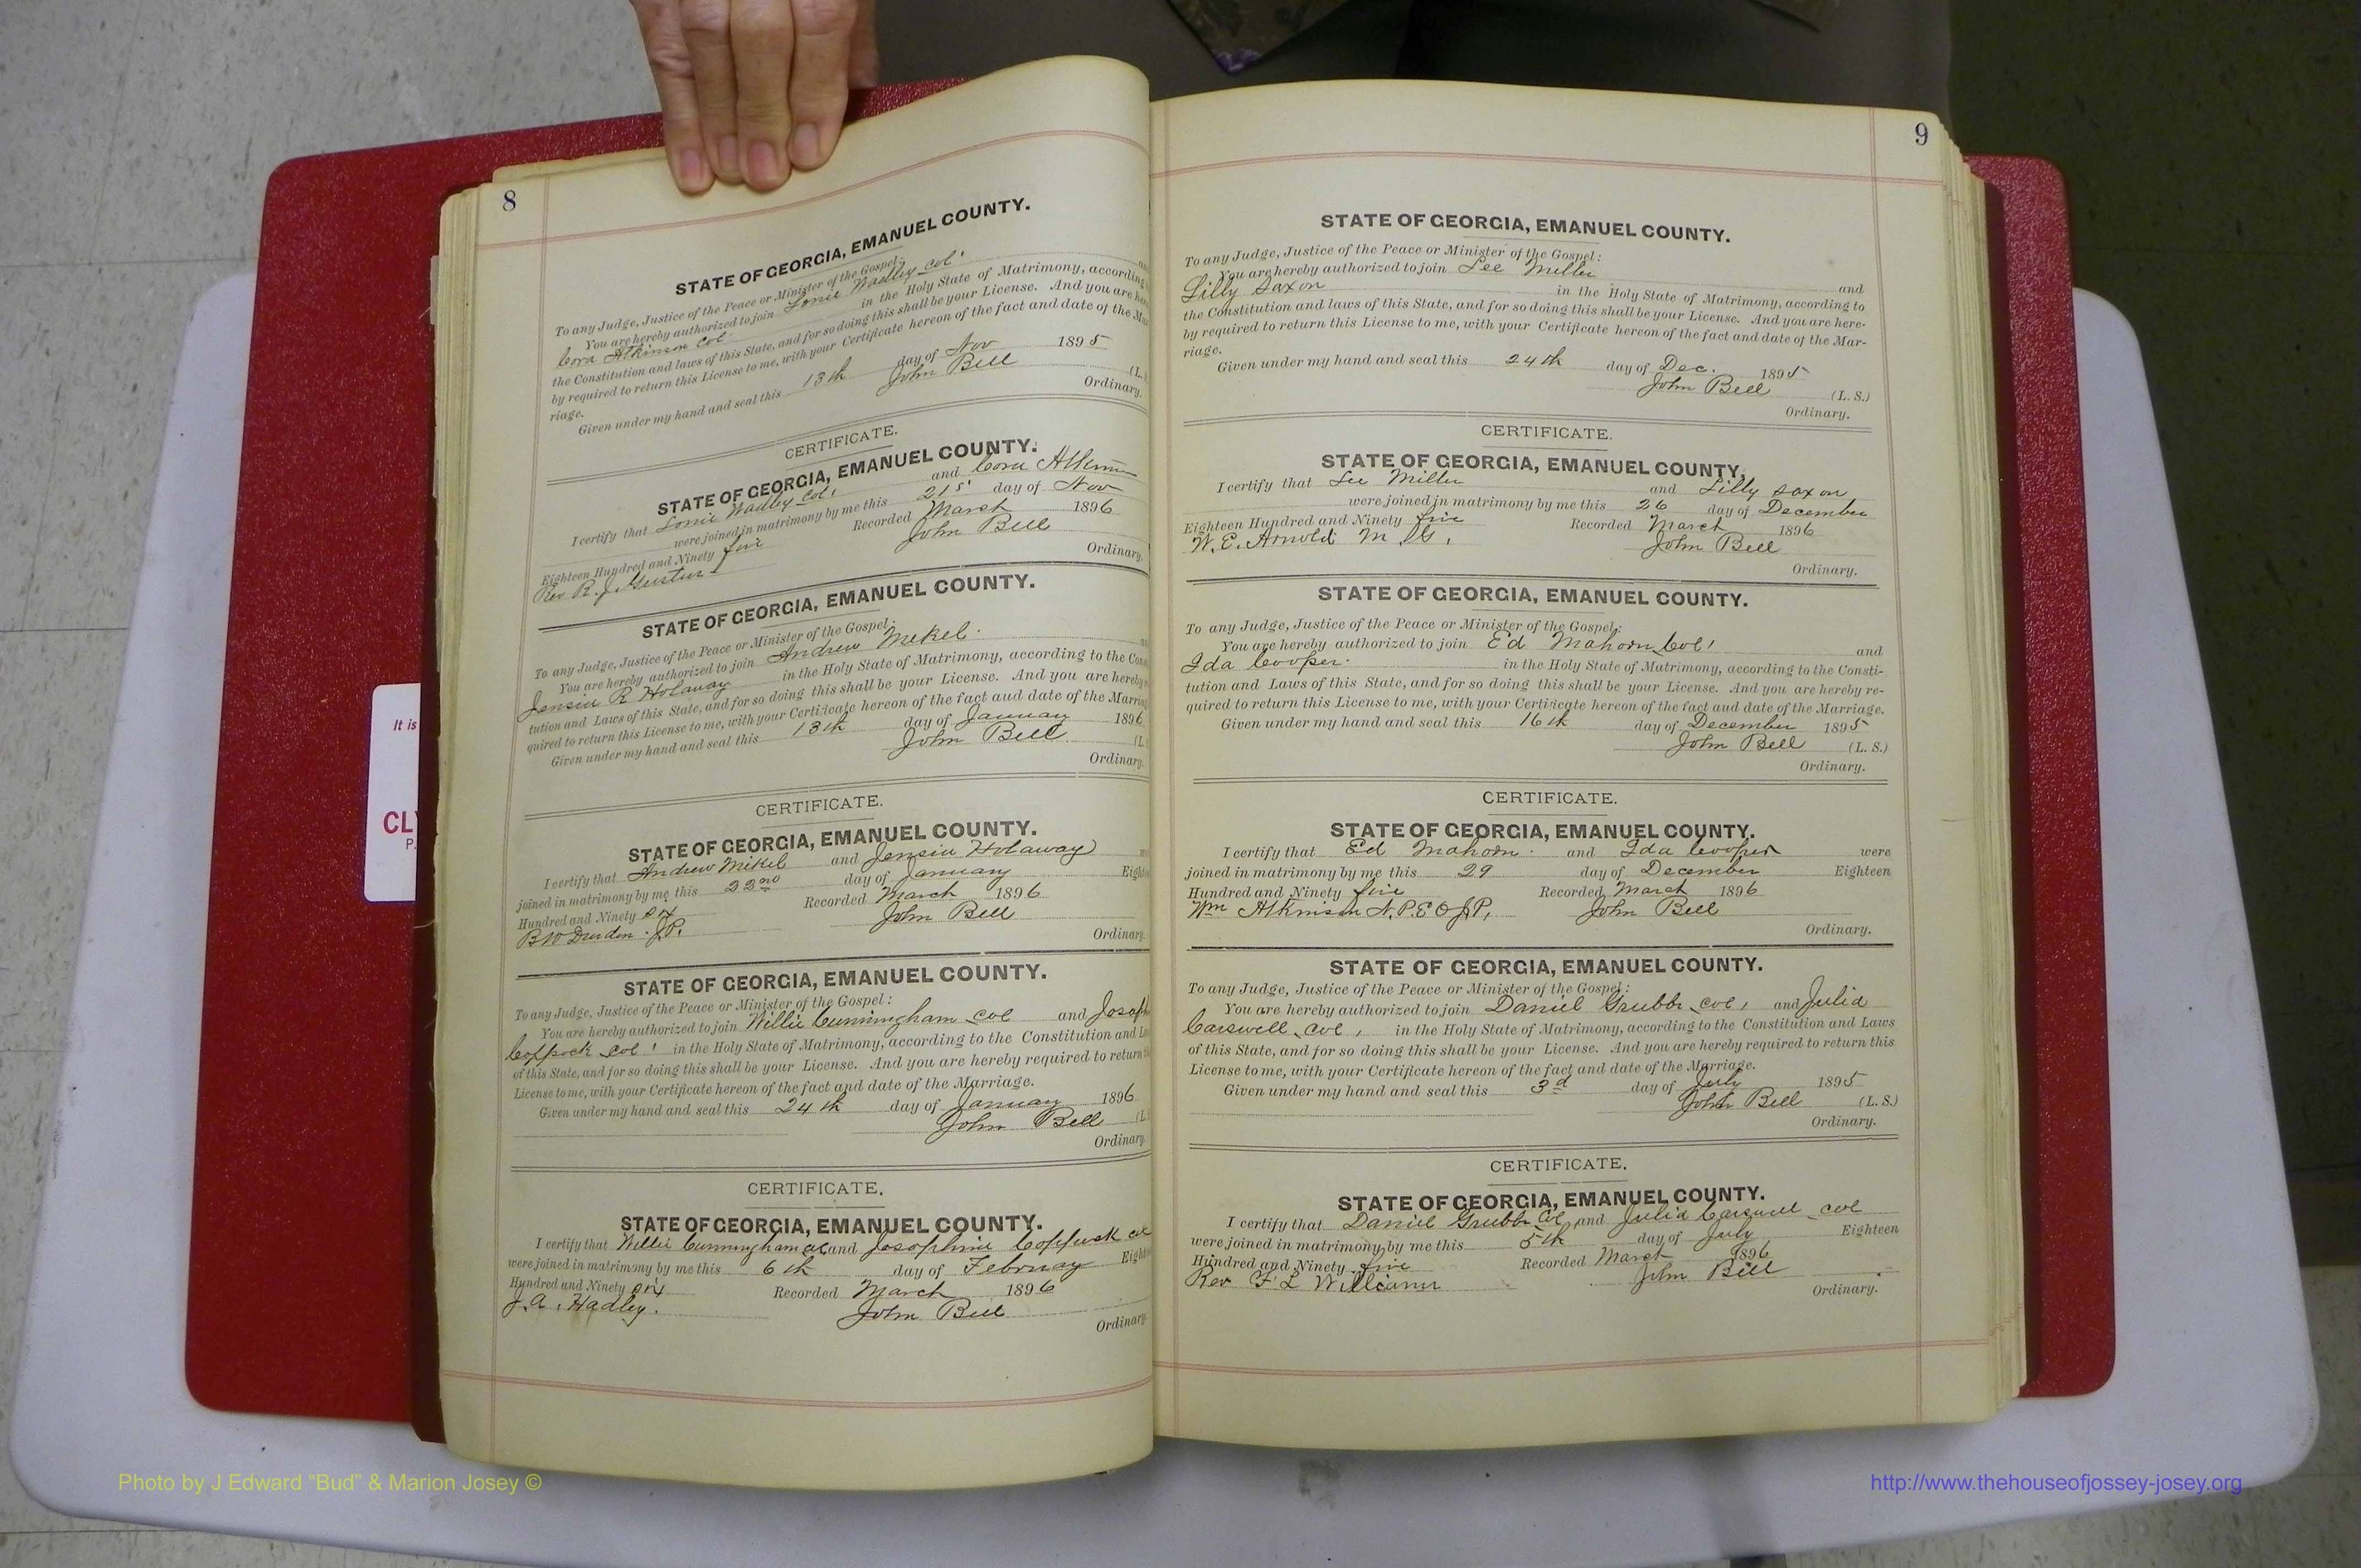 8
STATE OF GEORGIA, EMANUEL COUNTY.
To any Judge, Justice of the Peace or Minister of the Gospel:
You are hereby authorized to join Lonie Wadley col'
Cora Atkinson col' in the Holy State of Matrimony, according
the Constitution and laws of this State, and for so doing this shall be your License. And you are
by required to return this License to me, with your Certificate hereon of the fact and date of the
riage.
Given under my hand and seal this 13th day of Nov 1895
John Bell (L.
Ordinary.
CERTIFICATE.
STATE OF GEORGIA, EMANUEL COUNTY.
I certify that Lonie Wadley col' and Cora
were joined in matrimony by me this 21s' day of Nov
Eighteen Hundred and Ninety five Recorded March 1896
Rev R. J. John Bell
Ordinary.
STATE OF GEORGIA, EMANUEL COUNTY.
To any Judge, Justice of the Peace or Minister of the Gospel:
You are hereby authorized to join Andrew Mikel
R Holaway in the Holy State of Matrimony, according to the
tution and Laws of this State, and for so doing this shall be your License. And you are hereby
quired to return this License to me, with your Certificate hereon of the fact and date of the
Given under my hand and seal this 13th day of January 1896
John Bell (L.
Ordinary.
CERTIFICATE.
STATE OF GEORGIA, EMANUEL COUNTY.
I certify that Andrew Mikel and Holaway
joined in matrimony by me this 22nd day of January
Hundred and Ninety six Recorded March 1896
B W Durden J.P. John Bell
Ordinary.
STATE OF GEORGIA, EMANUEL COUNTY.
To any Judge, Justice of the Peace or Minister of the Gospel:
You are hereby authorized to join Willie Cunningham col and Joseph
Coppock col' in the Holy State of Matrimony, according to the Constitution and
of this State, and for so doing this shall be your License. And you are hereby required to return
License to me, with your Certificate hereon of the fact and date of the Marriage.
Given under my hand and seal this 24th day of January 1896
John Bell (L.
Ordinary.
CERTIFICATE.
STATE OF GEORGIA, EMANUEL COUNTY.
I certify that Willie Cunningham col and Josephine Coppock col
were joined in matrimony by me this 6th day of February
Hundred and Ninety six Recorded March 1896
J. A. Hadley. John Bell
Ordinary.
9
STATE OF GEORGIA, EMANUEL COUNTY.
To any Judge, Justice of the Peace or Minister of the Gospel:
You are hereby authorized to join Lee Miller
Lilly Saxon and
in the Holy State of Matrimony, according to
the Constitution and laws of this State, and for so doing this shall be your License. And you are here-
by required to return this License to me, with your Certificate hereon of the fact and date of the Mar-
riage.
Given under my hand and seal this 24th day of Dec. 1895
John Bell (L. S.)
Ordinary.
CERTIFICATE.
STATE OF GEORGIA, EMANUEL COUNTY,
I certify that Lee Miller and Lilly Saxon
were joined in matrimony by me this 26 day of December
Eighteen Hundred and Ninety five Recorded March 1896
W. E. Arnold M. G. John Bell
Ordinary.
STATE OF GEORGIA, EMANUEL COUNTY.
To any Judge, Justice of the Peace or Minister of the Gospel:
You are hereby authorized to join Ed Mahorn Col' and
Ida Cooper. in the Holy State of Matrimony, according to the Consti-
tution and Laws of this State, and for so doing this shall be your License. And you are hereby re-
quired to return this License to me, with your Certificate hereon of the fact and date of the Marriage.
Given under my hand and seal this 16th day of December 1895
John Bell (L. S.)
Ordinary.
CERTIFICATE.
STATE OF GEORGIA, EMANUEL COUNTY.
I certify that Ed Mahorn. and Ida Cooper were
joined in matrimony by me this 29 day of December Eighteen
Hundred and Ninety five Recorded March 1896
Wm Atkinson N.P.E O J.P. John Bell
Ordinary.
STATE OF GEORGIA, EMANUEL COUNTY.
To any Judge, Justice of the Peace or Minister of the Gospel:
You are hereby authorized to join Daniel Grubbs col, and Julia
Carswell col, in the Holy State of Matrimony, according to the Constitution and Laws
of this State, and for so doing this shall be your License. And you are hereby required to return this
License to me, with your Certificate hereon of the fact and date of the Marriage.
Given under my hand and seal this 3d day of July 1895
John Bell (L. S.)
Ordinary.
CERTIFICATE.
STATE OF GEORGIA, EMANUEL COUNTY.
I certify that Daniel Grubbs Col, and Julia Carswell col
were joined in matrimony by me this 5th day of July Eighteen
Hundred and Ninety five Recorded March 1896
Rev F L Williams John Bell
Ordinary.
It is
CL
P.
Photo by J Edward “Bud” & Marion Josey ©
http://www.thehouseofjossey-josey.org